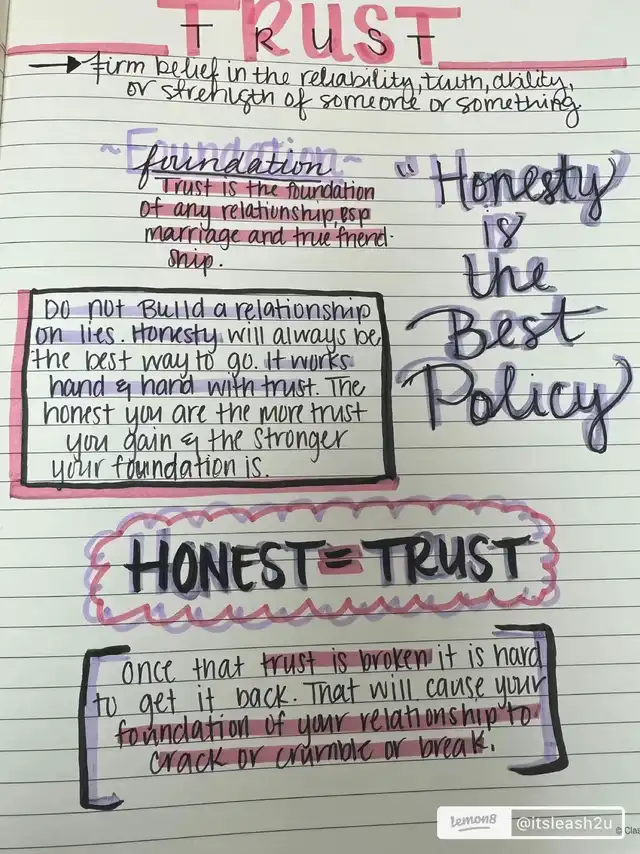 TRUST
TRUST
→ Firm belief in the reliability, truth, ability,
or strength of someone or something.
~Foundation~
foundation
Trust is the foundation
of any relationship, esp
marriage and true friend-
ship.
"Honesty
is
the
Best
Policy
Do not Build a relationship
on lies. Honesty will always be
the best way to go. It works
hand & hand with trust. The
honest you are the more trust
you gain & the stronger
your foundation is.
HONEST = TRUST
once that trust is broken it is hard
to get it back. That will cause your
foundation of your relationship to
crack or crumble or break.
lemon8 @itsleash2u
© Clas